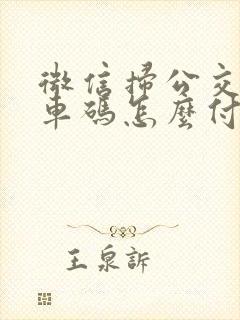 微信掃公交
車碼怎麼付
王泉訴